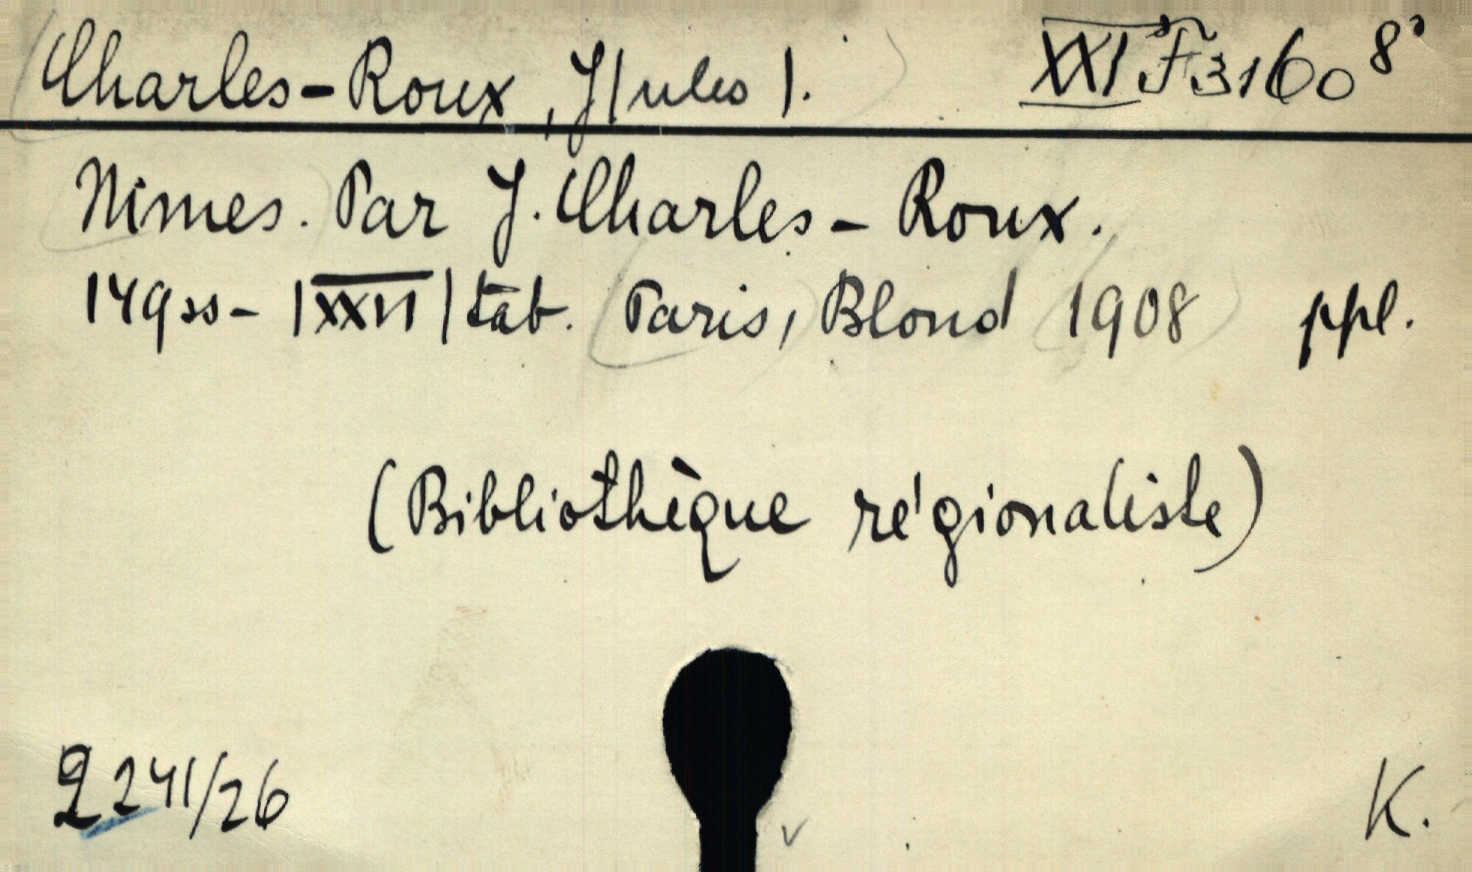 Charles-Roux, J(ules). XXI F 3160 8°
Nimes. Par J. Charles-Roux.
149 ss - |XXVI| tab. Paris, Blond 1908 ppl.
(Bibliothèque régionaliste)
2241/26 K.